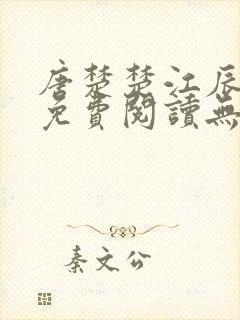 唐楚楚江辰
免費閱讀無
秦文公